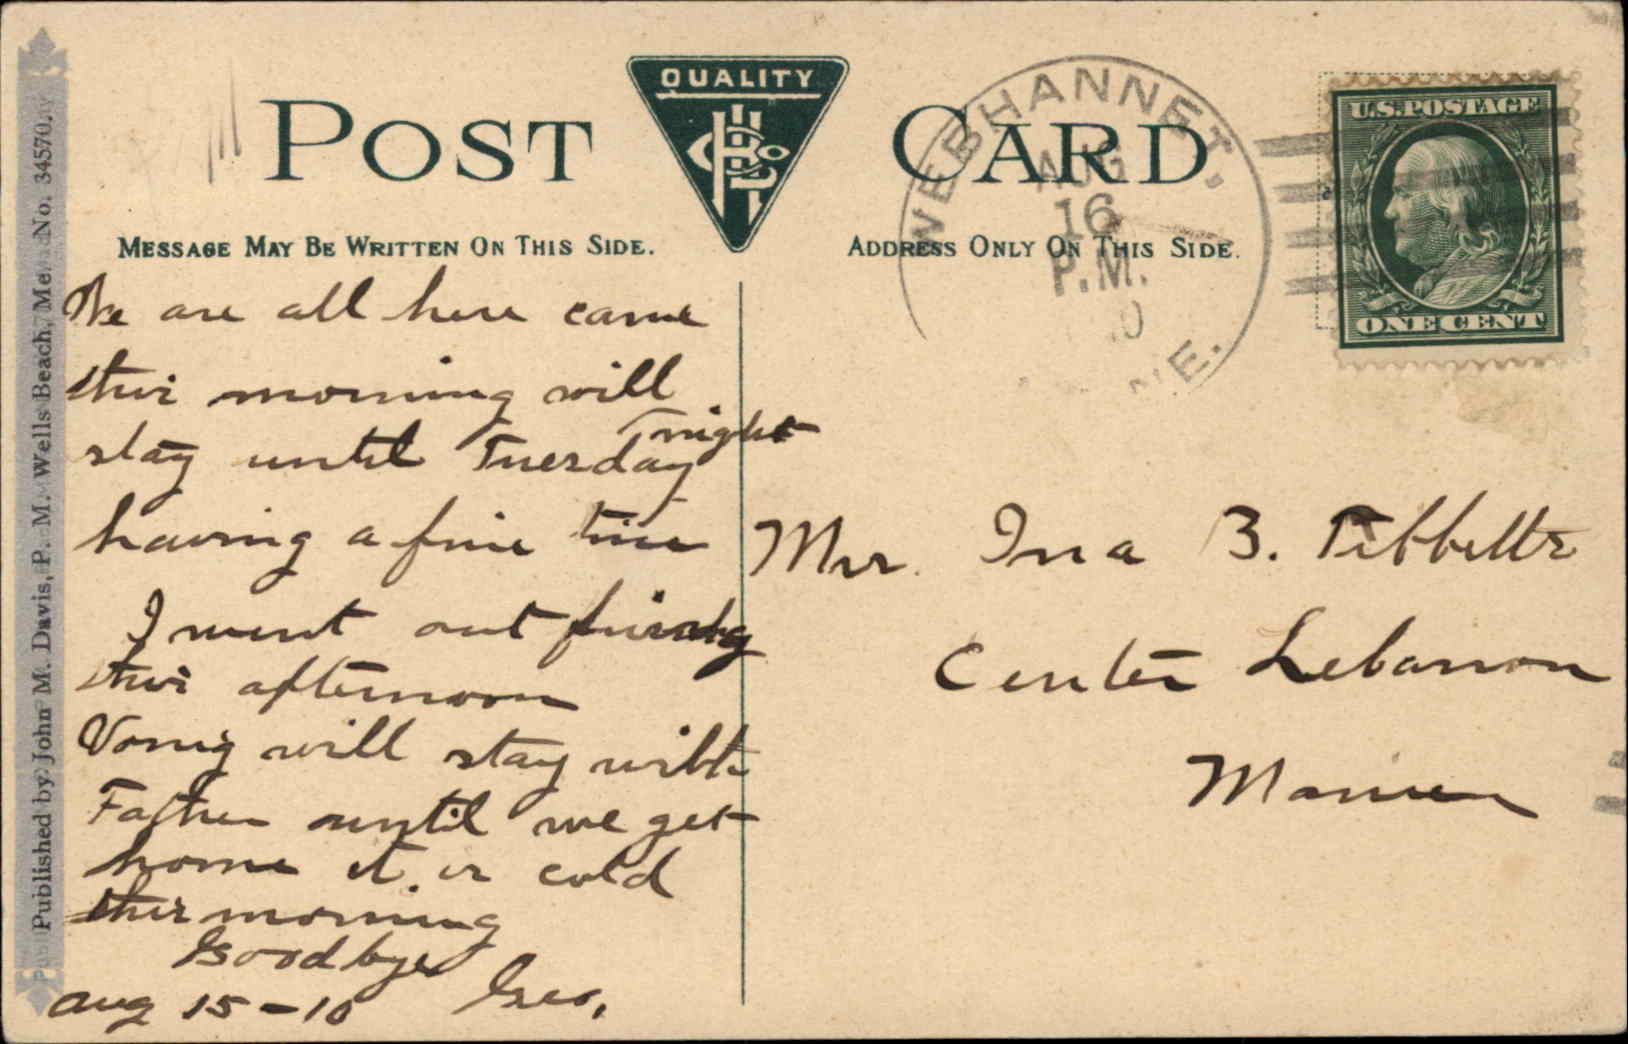 Published by John M. Davis, P. M. Wells Beach, Me. No. 34570.
POST CARD
QUALITY
MESSAGE MAY BE WRITTEN ON THIS SIDE.
ADDRESS ONLY ON THIS SIDE.
WEBHANNET,
AUG
16
P.M.
ME.
U.S. POSTAGE
ONE CENT
We are all here came
this morning will
stay until Tuesday night
having a fine time
I went out fishing
this afternoon
will stay with
Father until we get
home it is cold
this morning
Goodbye
Geo,
Aug 15-10
Mrs. Ina B. Tibbetts
Center Lebanon
Maine